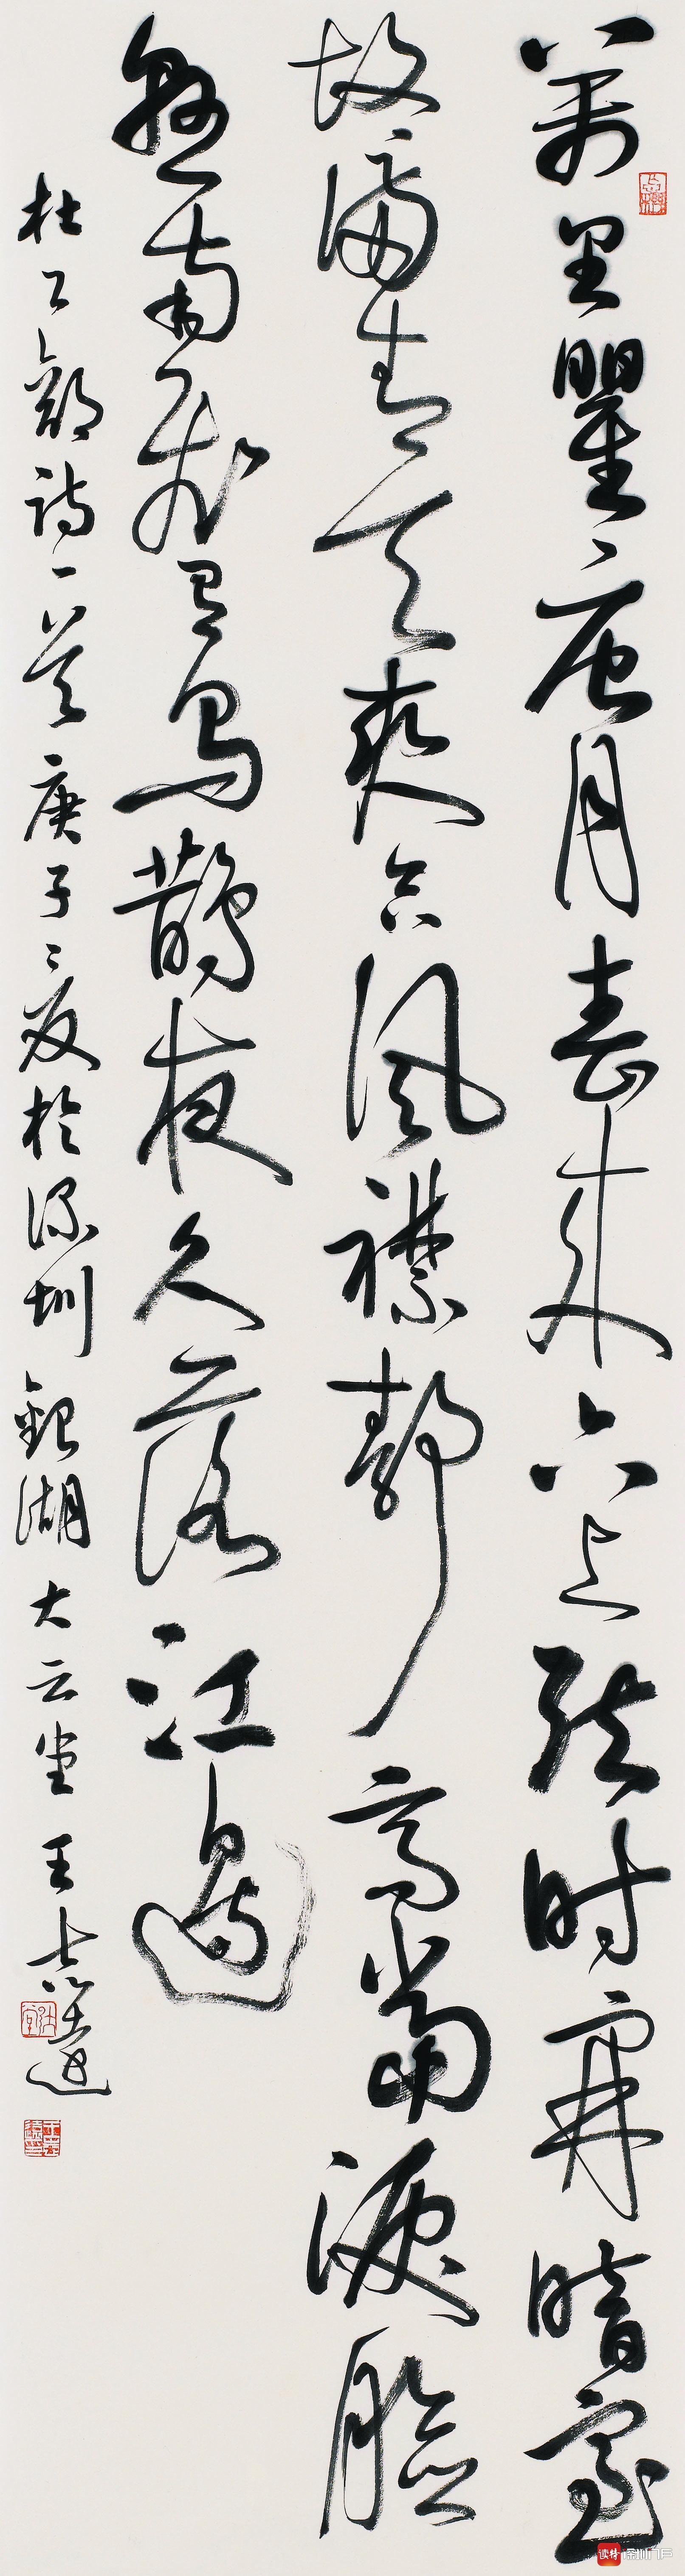 萬里瞿唐月春來六上弦时開暗室
故滿青天爽合風襟静高當淚臉
懸南飛有烏鵲夜久落江邊
杜工部詩一首庚子之夏於深圳銀湖大云堂王
读特